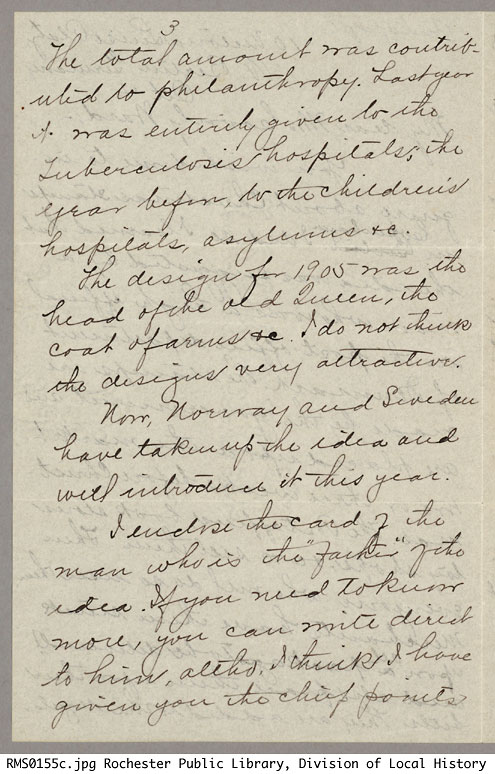 3
The total amount was contrib-
uted to philanthropy. Last year
it was entirely given to the
Tuberculosis hospitals; the
year before, to the children's
hospitals, asylums &c.
The design for 1905 was the
head of the old Queen, the
coat of arms &c. I do not think
the designs very attractive.
Now, Norway and Sweden
have taken up the idea and
will introduce it this year.
I enclose the card of the
man who is the "father" of the
idea. If you need to know
more, you can write direct
to him, altho. I think I have
given you the chief points
RMS0155c.jpg Rochester Public Library, Division of Local History